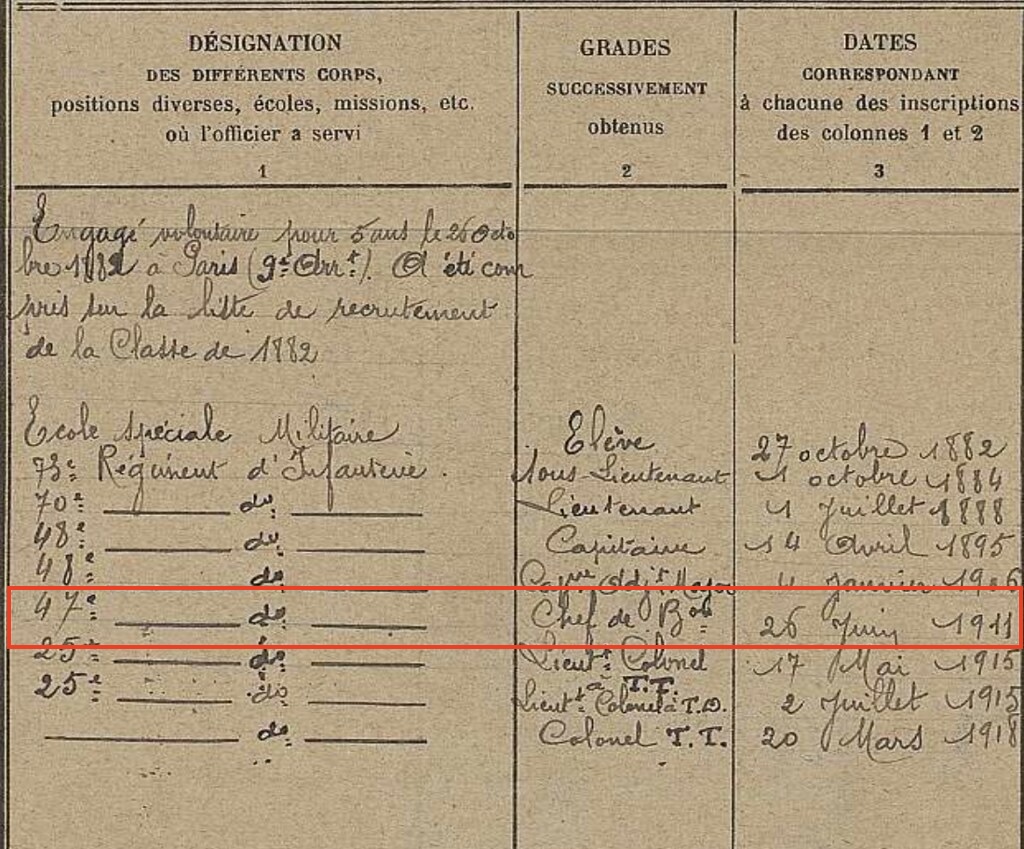 DÉSIGNATION
DES DIFFÉRENTS CORPS,
positions diverses, écoles, missions, etc.
où l'officier a servi
1
GRADES
SUCCESSIVEMENT
obtenus
2
DATES
CORRESPONDANT
à chacune des inscriptions
des colonnes 1 et 2
3
Engagé volontaire pour 5 ans le 26 Octo
bre 1882 à Paris (9e Arrt). A été com
pris sur la liste de recrutement
de la Classe de 1882
Ecole Spéciale Militaire Elève 27 octobre 1882
73e Régiment d'Infanterie. Sous-Lieutenant 1 octobre 1884
70e do Lieutenant 1 Juillet 1888
48e do Capitaine 14 Avril 1895
48e do Capne Adjt Major 4 Janvier 1906
47e do Chef de Bon 26 Juin 1911
25e do Lieut Colonel 17 Mai 1915
à T.T.
25e do Lieutt Colonel à T.D. 2 Juillet 1915
do Colonel T.T. 20 Mars 1918